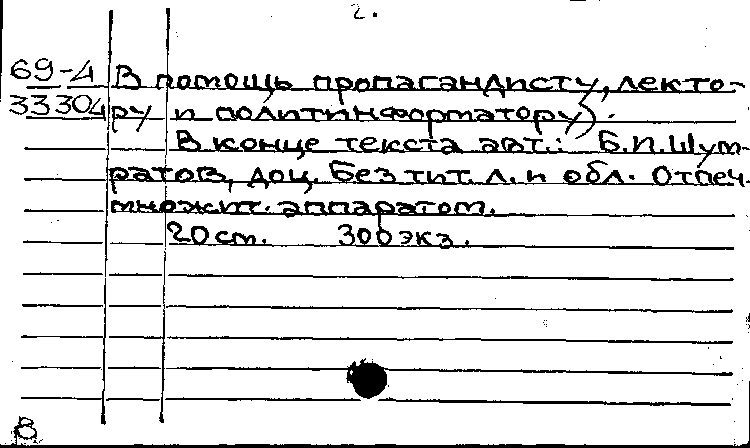 2.
69-4 В помощь пропагандисту, лекто-
33304 ру и политинформатору).
В конце текста авт.: Б.П.Шум-
ратов, доц. Без тит. л. и обл. Отпеч.
множит. аппаратом.
20 ст. 300 экз.
В